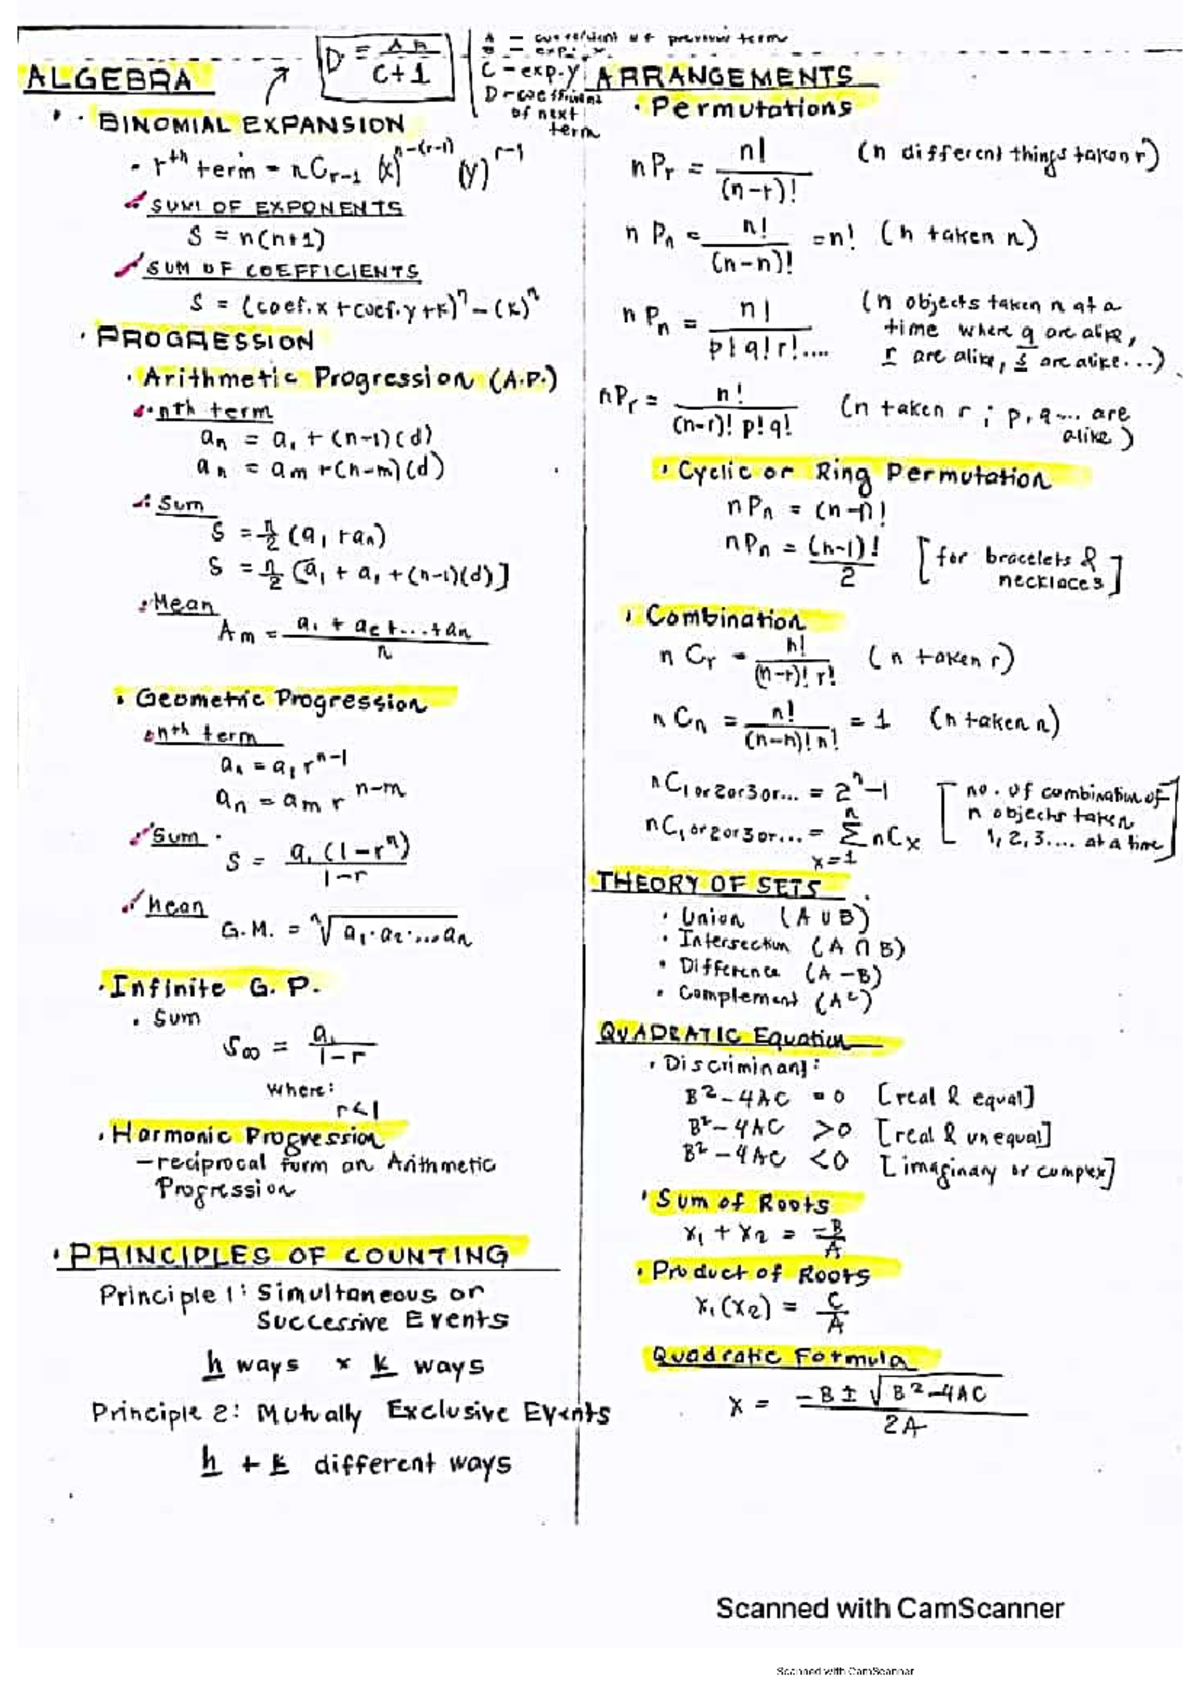 D = AB / C+1
A — coefficient of previous term
B — exp. x
C — exp. y
D — coefficient
of next
term
ALGEBRA
• BINOMIAL EXPANSION
• rth term = nCr-1 (x)^n-(r-1) (y)^r-1
SUM OF EXPONENTS
S = n(n+1)
SUM OF COEFFICIENTS
S = (coef.x + coef.y + k)^n - (k)^n
• PROGRESSION
• Arithmetic Progression (A.P.)
• nth term
an = a1 + (n-1)(d)
an = am + (n-m)(d)
• Sum
S = n/2 (a1 + an)
S = n/2 [a1 + a1 + (n-1)(d)]
• Mean
Am = a1 + a2 + ... + an / n
• Geometric Progression
nth term
an = a1 r^n-1
an = am r^n-m
Sum
S = a1 (1-r^n) / 1-r
Mean
G.M. = ⁿ√ a1 · a2 · ... an
• Infinite G. P.
• Sum
S∞ = a1 / 1-r
Where:
r < 1
• Harmonic Progression
— reciprocal form an Arithmetic
Progression
• PRINCIPLES OF COUNTING
Principle 1: Simultaneous or
Successive Events
h ways x k ways
Principle 2: Mutually Exclusive Events
h + k different ways
ARRANGEMENTS
• Permutations
nPr = n! / (n-r)! (n different things taken r)
nPn = n! / (n-n)! = n! (n taken n)
nPn = n! / p! q! r! .... (n objects taken n at a
time where q are alike,
r are alike, s are alike...)
nPr = n! / (n-r)! p! q! (n taken r ; p, q .... are
alike)
• Cyclic or Ring Permutation
nPn = (n-1)!
nPn = (n-1)! / 2 [for bracelets &
necklaces]
• Combination
nCr = n! / (n-r)! r! (n taken r)
nCn = n! / (n-n)! n! = 1 (n taken n)
nC1 or 2 or 3 or... = 2^n - 1 [no. of combination of
n objects taken
1, 2, 3 .... at a time]
nC1 or 2 or 3 or... = Σ nCx
n
x=1
THEORY OF SETS
• Union (A ∪ B)
• Intersection (A ∩ B)
• Difference (A - B)
• Complement (A^c)
QUADRATIC Equation
• Discriminant:
B² - 4AC = 0 [real & equal]
B² - 4AC > 0 [real & unequal]
B² - 4AC < 0 [imaginary or complex]
• Sum of Roots
x1 + x2 = -B / A
• Product of Roots
x1(x2) = C / A
Quadratic Formula
x = -B ± √ B² - 4AC / 2A
Scanned with CamScanner
Scanned with CamScanner